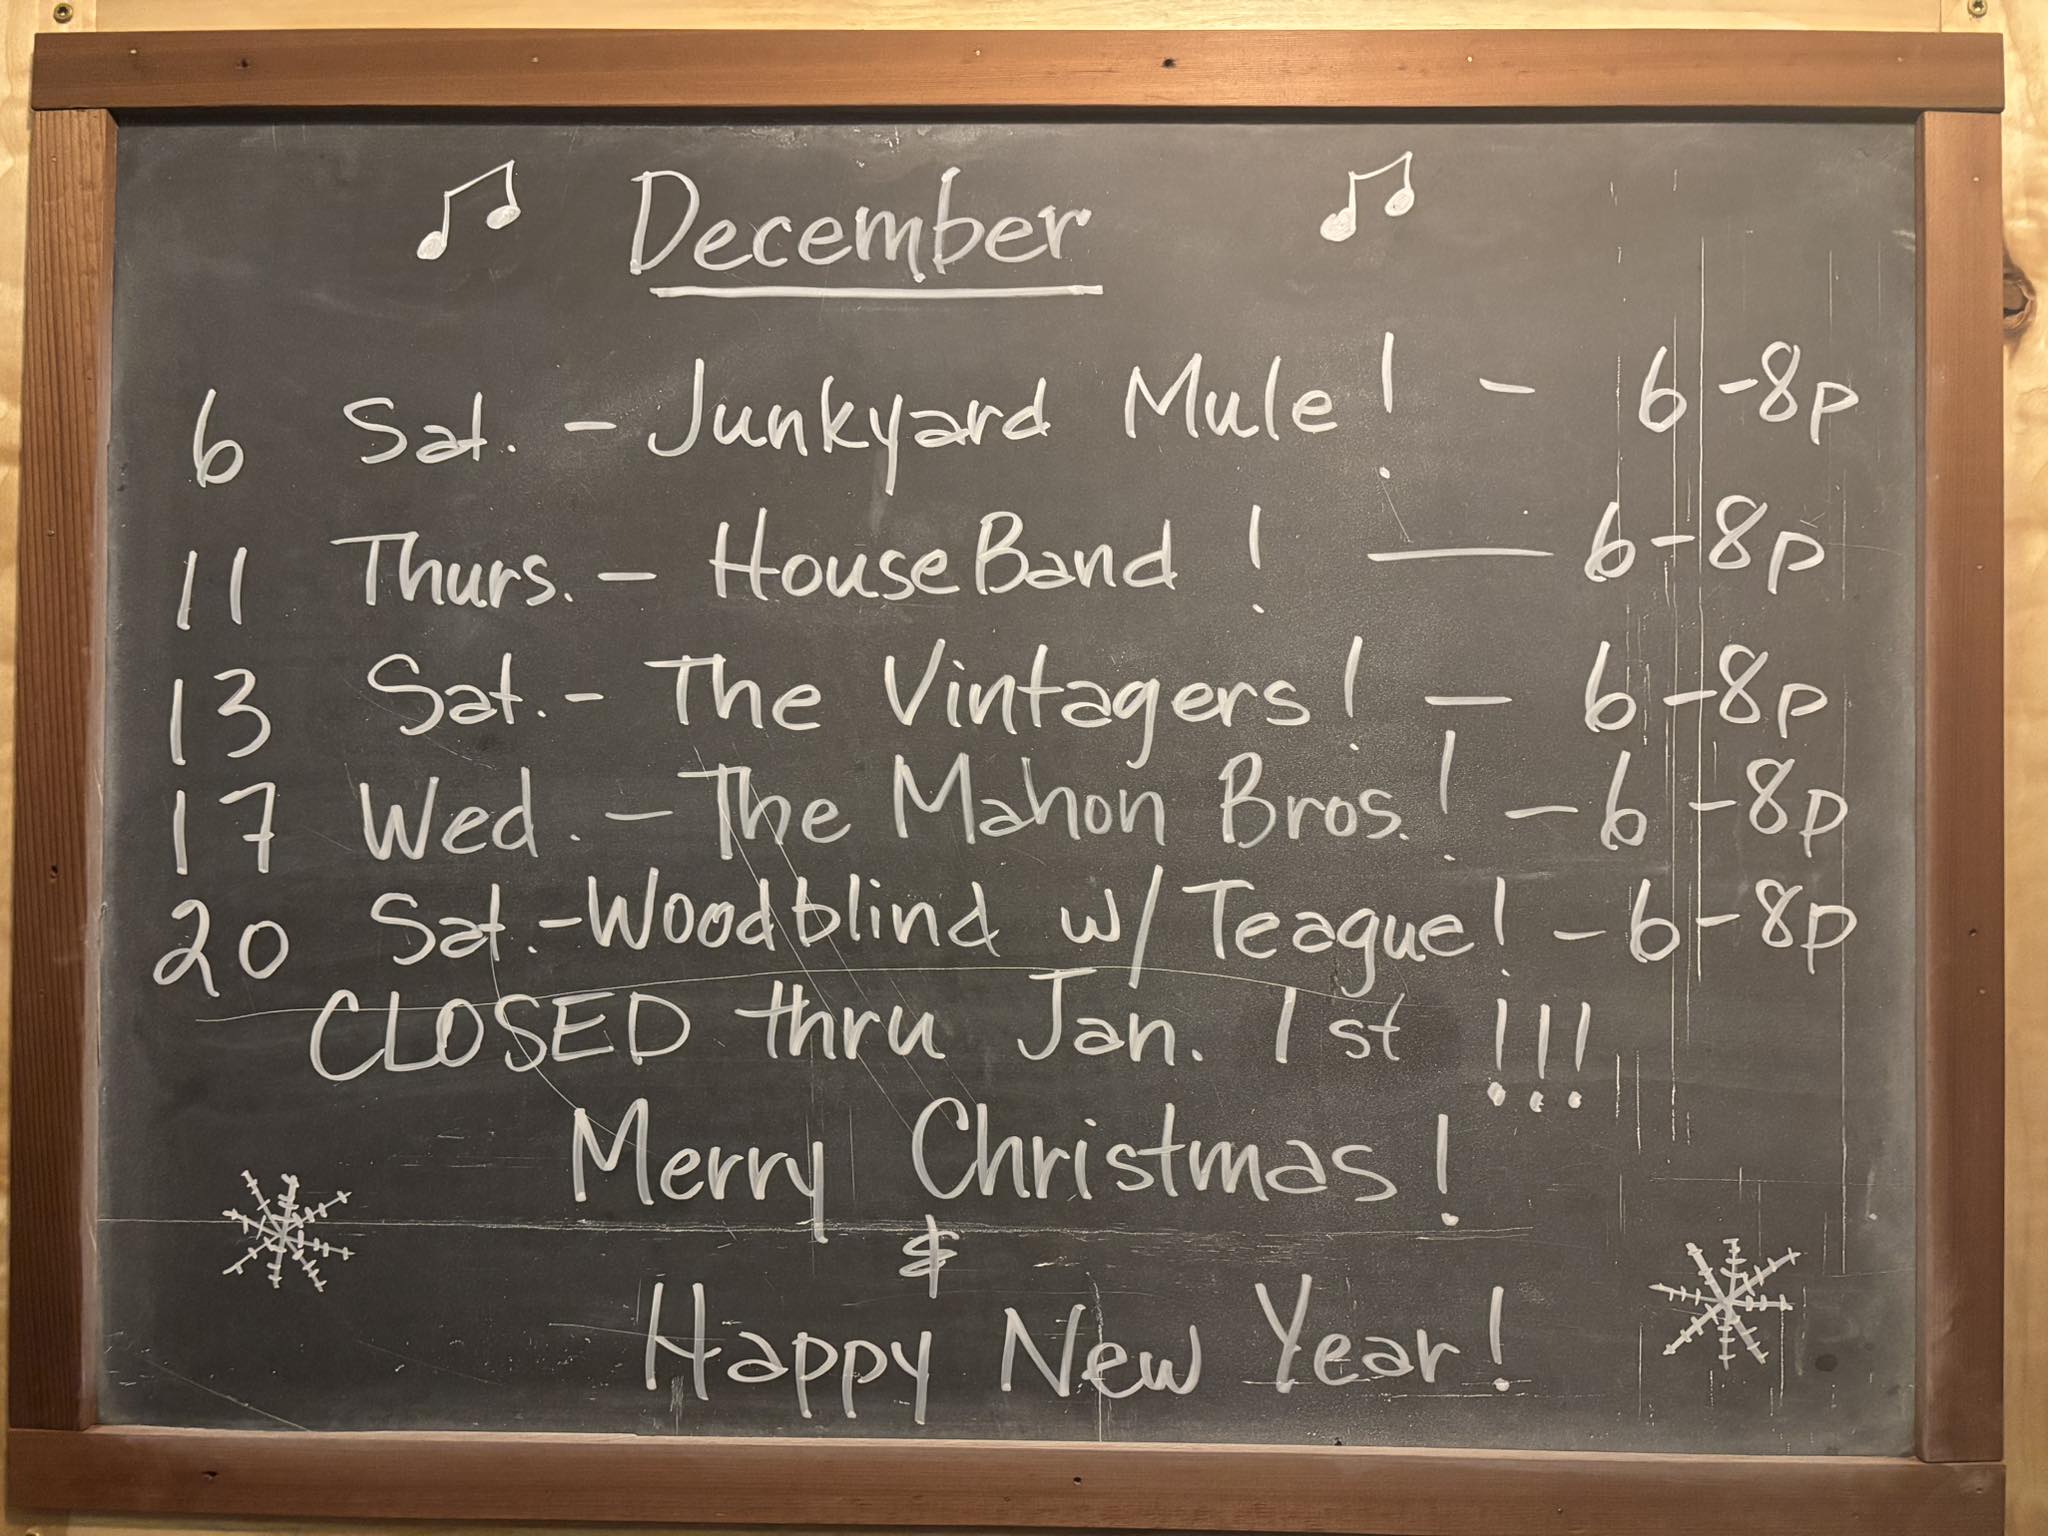 December
6 Sat. - Junkyard Mule! - 6-8p
11 Thurs. - House Band! — 6-8p
13 Sat. - The Vintagers! - 6-8p
17 Wed. - The Mahon Bros.! - 6-8p
20 Sat. - Woodblind w/ Teague! - 6-8p
CLOSED thru Jan. 1st !!!
Merry Christmas!
&
Happy New Year!